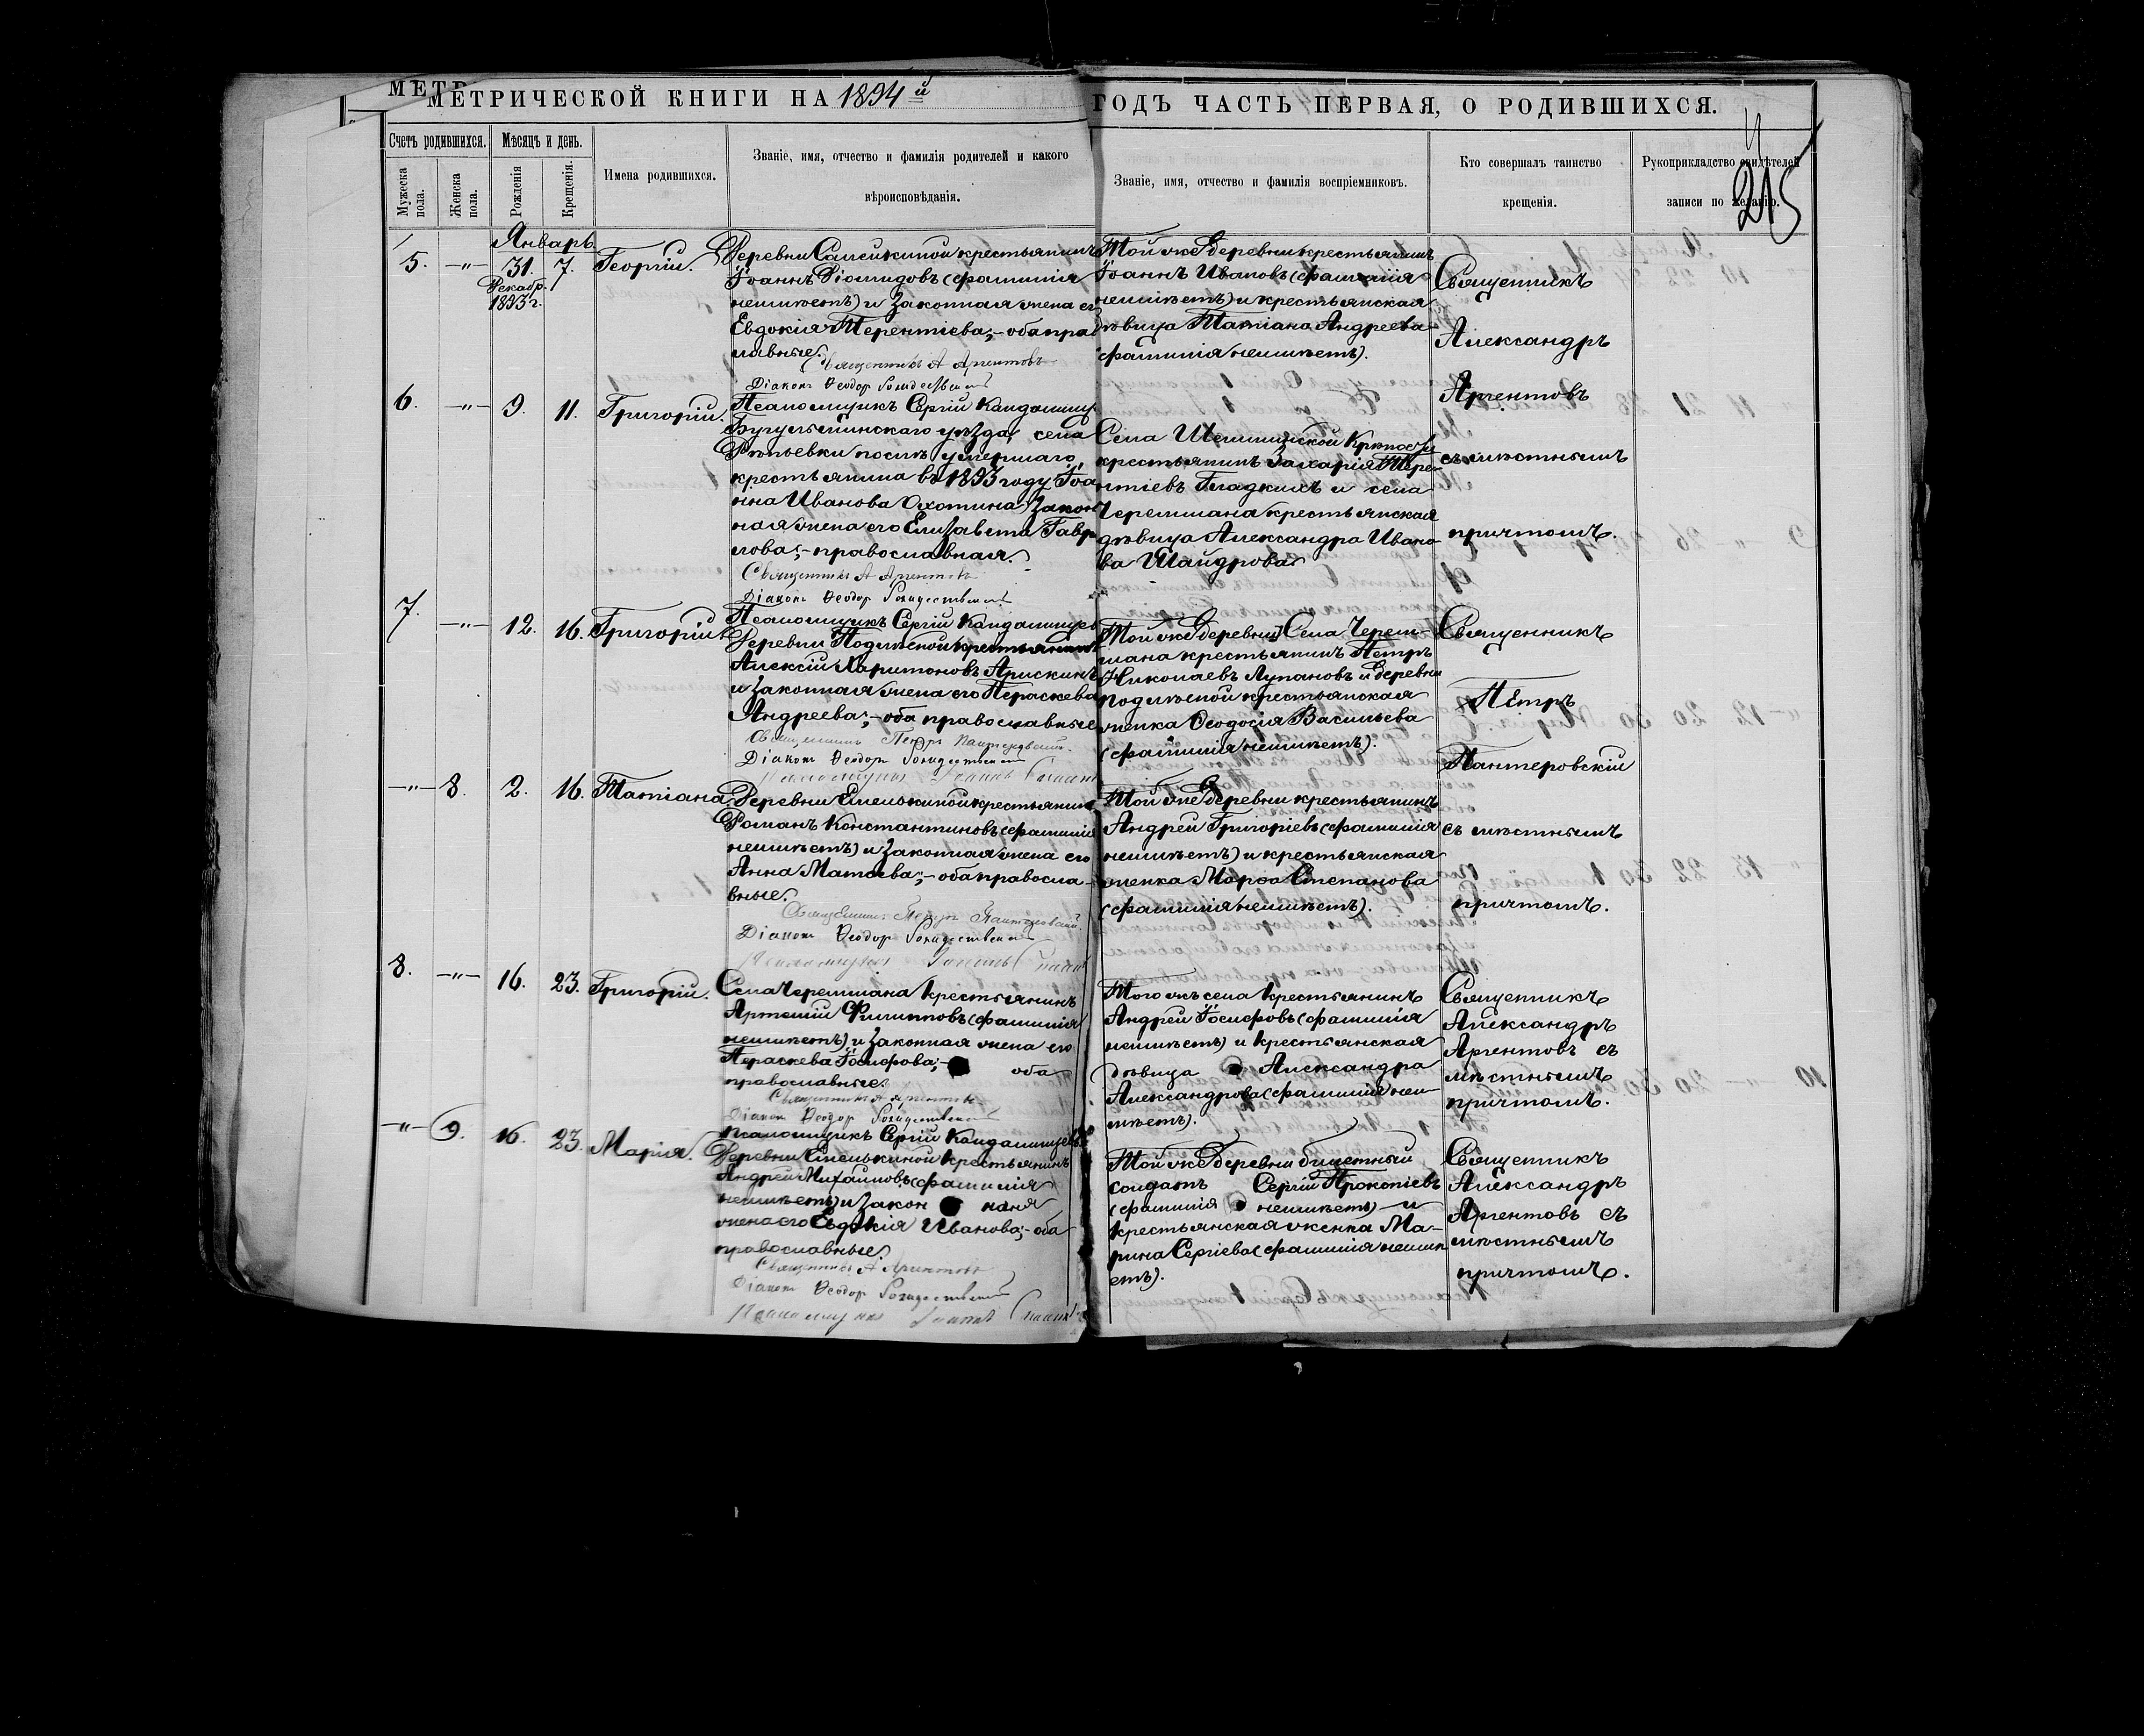 МЕТРИЧЕСКОЙ КНИГИ НА 1894й ГОДЪ ЧАСТЬ ПЕРВАЯ, О РОДИВШИХСЯ.
Счетъ родившихся.
Мѣсяцъ и день.
Мужеска пола.
Женска пола.
Рожденія
Крещенія.
Имена родившихся.
Званіе, имя, отчество и фамилія родителей и какого
вѣроисповѣданія.
Званіе, имя, отчество и фамилія воспріемниковъ.
Кто совершалъ таинство
крещенія.
Рукоприкладство свидѣтелей
записи по желанію.
Январь.
5. -"- 31. 7. Георгій.
Декабр.
1893 г.
Деревни Салейкиной крестьянинъ
Іоаннъ Діомидовъ (фамилія
неимѣетъ) и законная жена ег
Евдокія Терентіева; - оба прав
лавные.
Священникъ А Аргентовъ
Діаконъ Ѳеодор Рождественскій
Той же деревни крестьянинъ
Іоаннъ Ивановъ (фамилія
неимѣетъ) и крестьянская
дѣвица Татіана Андреева
(фамилія неимѣетъ).
Священникъ
Александръ
Аргентовъ
съ мѣстнымъ
причтомъ.
6. -"- 9. 11. Григорій.
Псаломщикъ Сергій Кандалинц
Бугульминскаго уѣзда, села
Рѣпьевки послѣ умершаго
крестьянина въ 1893 году Іоа
нна Иванова Охотина закон
ная жена его Елизавета Гавр
лова; - православная.
Священникъ А Аргентовъ
Діаконъ Ѳеодор Рождественскій
Села Шешминской Крѣпости
крестьянинъ Захарія Тере-
нтіевъ Гладкихъ и села
Черемшана крестьянская
дѣвица Александра Ивано-
ва Шайдрова
7. -"- 12. 16. Григорій
Псаломщикъ Сергій Кандалинцев
Деревни Подлѣсной крестьянинъ
Алексій Харитоновъ Арискинъ
и законная жена его Параскева
Андреева; - оба православные
Священникъ Петръ Пантеровскій.
Діаконъ Ѳеодор Рождественскій
Той же деревни Села Черем-
шана крестьянинъ Петръ
Николаевъ Лупановъ и деревни
Подлѣсной крестьянская
женка Ѳеодосія Васильева
(фамилія неимѣетъ).
Священникъ
Петръ
Пантеровскій
съ мѣстнымъ
причтомъ.
-"- 8. 2. 16. Татіана
Деревни Емелькиной крестьянинъ
Романъ Константиновъ (фамилія
неимѣетъ) и законная жена его
Анна Матѳеева; - оба правосла-
вные.
Священникъ Петръ Пантеровскій.
Діаконъ Ѳеодор Рождественскій
Той же деревни крестьянинъ
Андрей Григоріевъ (фамилія
неимѣетъ) и крестьянская
женка Марѳа Степанова
(фамилія неимѣетъ).
8. -"- 16. 23. Григорій.
Села Черемшана крестьянинъ
Артемій Филипповъ (фамилія
неимѣетъ) и законная жена его
Параскева Іосифова; - оба
православные.
Священникъ А Аргентовъ
Діаконъ Ѳеодор Рождественскій
Псаломщикъ Сергій Кандалинцевъ
Того жъ села крестьянинъ
Андрей Іосифовъ (фамилія
неимѣетъ) и крестьянская
дѣвица Александра
Александрова (фамилія неи-
мѣетъ).
Священникъ
Александръ
Аргентовъ съ
мѣстнымъ
причтомъ.
-"- 9. 16. 23. Марія.
Деревни Емелькиной крестьянинъ
Андрей Михайловъ (фамилія
неимѣетъ) и закон ная
жена его Евдокія Иванова; - оба
православные.
Священникъ А Аргентовъ
Діаконъ Ѳеодор Рождественскій
Той же деревни билетный
солдатъ Сергій Прокопіевъ
(фамилія неимѣетъ) и
крестьянская женка Ма-
рина Сергіева (фамилія неимѣ
етъ).
Священникъ
Александръ
Аргентовъ съ
мѣстнымъ
причтомъ.